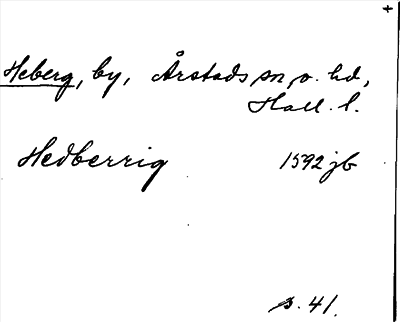 +
Heberg, by, Årstads sn o. hd,
Hall. l.
Hedberrig 1592 jb
s. 41.